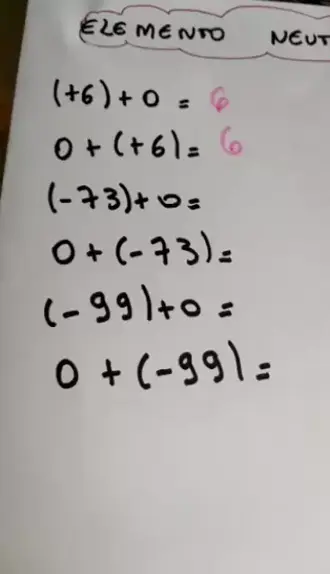 ELEMENTO NEUT
(+6)+0 = 6
0+(+6)= 6
(-73)+0=
0+(-73)=
(-99)+0=
0+(-99)=